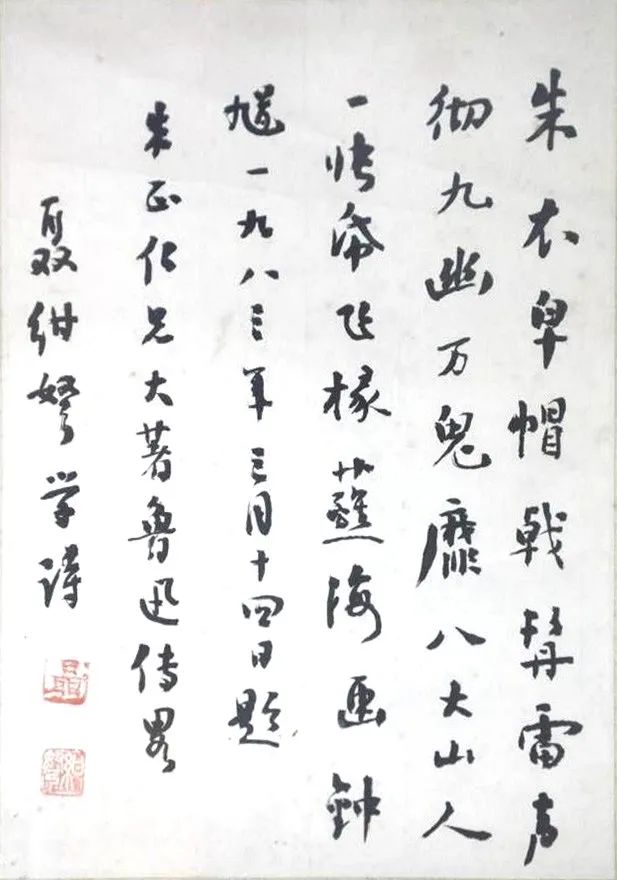 朱衣皁帽戟髯雷声
彻九幽万鬼靡八大山人
一张帋飞椽蘸海画鍾
馗一九八三年三月十四日题
朱正仁兄大著鲁迅传畧
聂绀弩学诗